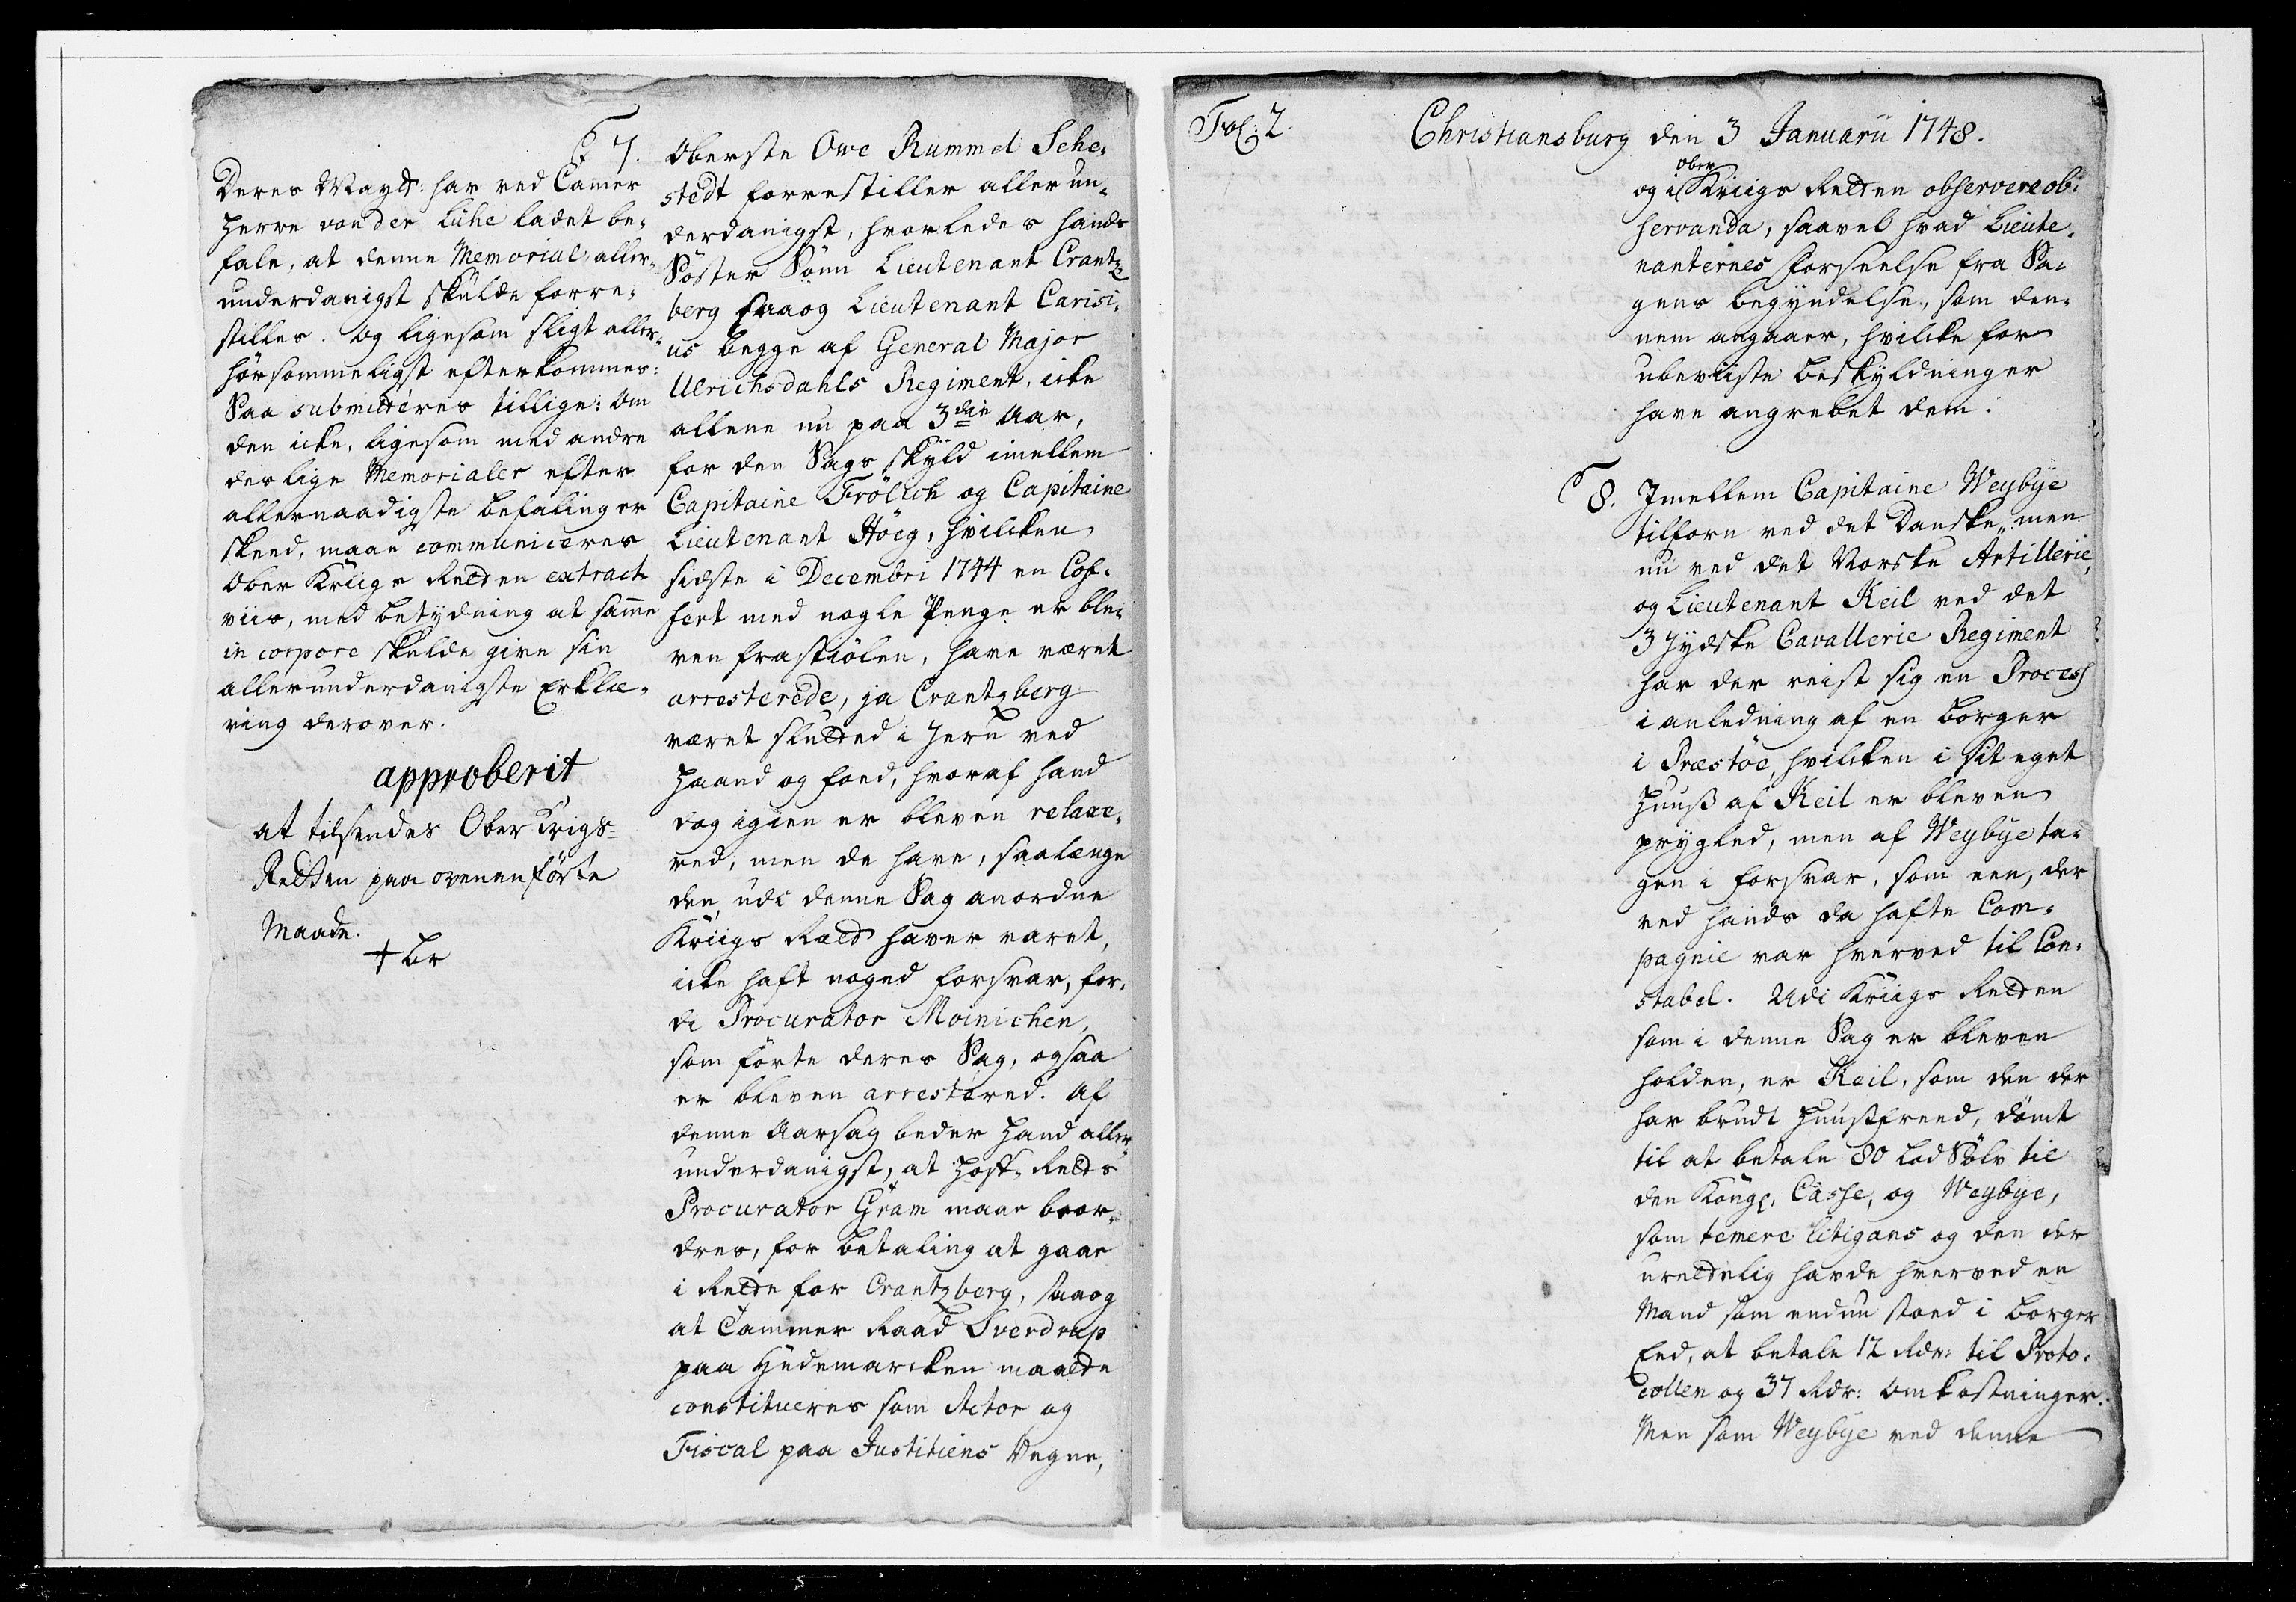 7.
Deres Mayts: har ved Camer
Herre von der Lühe ladet be-
fale, at denne Memorial aller-
underdanigst skulde forre-
stilles. Og ligesom sligt aller-
hørsommeligst efterkommes:
Saa submitteres tillige: Om
den icke, ligesom med andre
deslige Memorialer efter
allernaadigste befalinger
skeed, maae communiceres
Ober Kriigs Retten extract
viis, med betydning at samme
in corpore skulde give sin
allerunderdanigste Erklæ-
ring derover.
approberit
at tilsendes Ober Krigs-
Retten paa ovenanførte
Maade.
Oberste Owe Rummel Sehe-
stedt forrestiller allerun-
derdanigst, hvorledes hands
Søster Sønn Lieutenant Crantz-
berg saa og Lieutenant Carisi-
us begge af General Major
Ulrichsdahls Regiment, icke
allene nu paa 3die Aar,
for den Sags skyld imellem
Capitaine Frölich og Capitaine
Lieutenant Höeg, hvilcken
sidste i Decembri 1744 en Cof-
fert med nogle Penge er ble-
ven frastiølen, have været
arresterede, ja Crantzberg
været slutted i Jern ved
Haand og foed, hvoraf hand
dog igien er bleven relaxe-
red, men de have, saalænge
den, udi denne Sag anordne
Kriigs Rætt haver varet,
icke haft noged forsvar, for-
di Procurator Moinichen,
som førte deres Sag, ogsaa
er bleven arrestered. Af
denne Aarsag beder Hand aller-
underdanigst, at Hoff-Retts
Procurator Gram maae beor-
dres, for betaling at gaae
i Rette for Crantzberg, saa og
at Cammer Raad Sverdrup
paa Hedemarcken maatte
constitueres som Actor og
Fiscal paa Justitiens Vegne,
Fol: 2.
Christiansburg den 3 Januarii 1748.
ober
og i Kriigs Retten observere ob-
servanda, saavel hvad Lieute-
nanternes forseelse fra Sa-
gens begyndelse, som den-
nem angaaer, hvilcke for
ubeviiste beskyldninger
have angrebet dem.
8. Imellem Capitaine Weybye
tilforn ved det Danske, men
nu ved det Norske Artillerie,
og Lieutenant Keil ved det
3 Jydske Cavallerie Regiment
har der reist sig en Process
i anledning af en borger
i Præstöe, hvilcken i sit eget
Huuß af Keil er bleven
prygled, men af Weybye ta-
gen i forsvar, som een, der
ved hands da hafte Com-
pagnie var hverved til Con-
stabel. Udi Kriigs Retten
som i denne Sag er bleven
holden, er Keil, som den der
har brudt Huußfreed, dømt
til at betale 80 Lod Sölv til
den Kongl. Casse, og Weybye,
som temere litigans og den der
urettelig havde hverved en
Mand som endnu stoed i borger
Eed, at betale 12 Rdr: til Proto-
collen og 37 Rdr: Omkostninger.
Men som Weybye ved denne